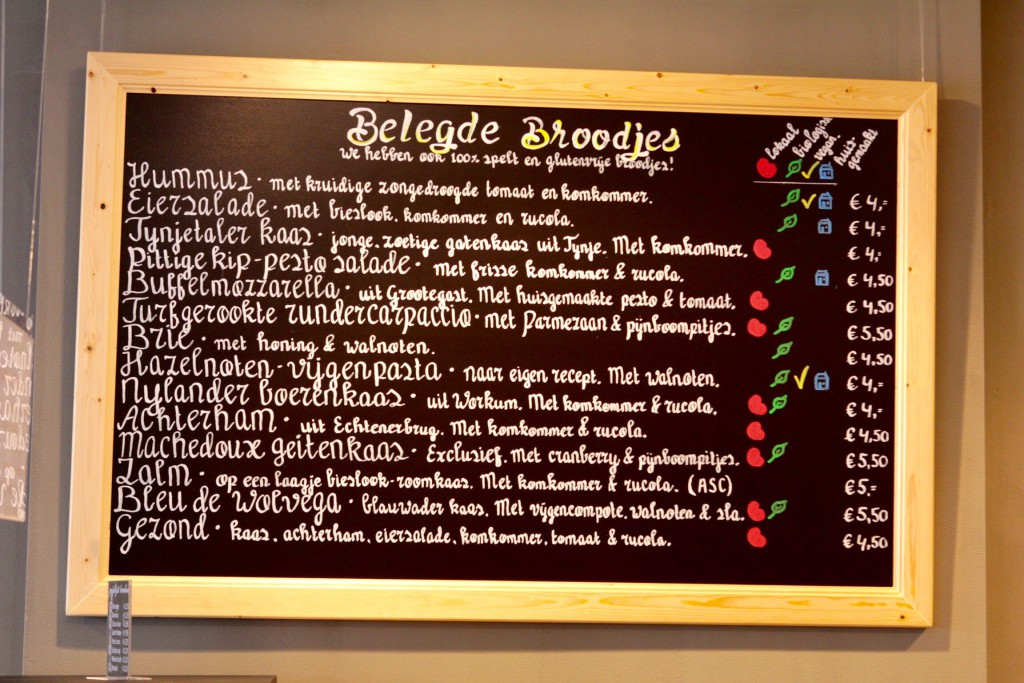 Belegde Broodjes
We hebben ook 100% spelt en glutenvrije broodjes!
lokaal biologisch vegan. huis-gemaakt
Hummus · met kruidige zongedroogde tomaat en komkommer. € 4,=
Eiersalade · met bieslook, komkommer en rucola. € 4,=
Tynjetaler kaas · jonge, zoetige gatenkaas uit Tynje. Met komkommer. € 4,-
Pittige kip-pesto salade · met frisse komkommer & rucola. € 4,50
Buffelmozzarella · uit Grootegast. Met huisgemaakte pesto & tomaat. € 4,50
Turfgerookte rundercarpaccio · met Parmezaan & pijnboompitjes. € 5,50
Brie · met honing & walnoten. € 4,50
Hazelnoten-vijgenpasta · naar eigen recept. Met walnoten. € 4,=
Nylander boerenkaas · uit Workum. Met komkommer & rucola. € 4,=
Achterham · uit Echtenerbrug. Met komkommer & rucola. € 4,50
Machedoux geitenkaas · Exclusief. Met cranberry & pijnboompitjes. € 5,50
Zalm · op een laagje bieslook-roomkaas. Met komkommer & rucola. (ASC) € 5,=
Bleu de Wolvega · blauwader kaas. Met vijgencompote, walnoten & sla. € 5,50
Gezond · kaas, achterham, eiersalade, komkommer, tomaat & rucola. € 4,50